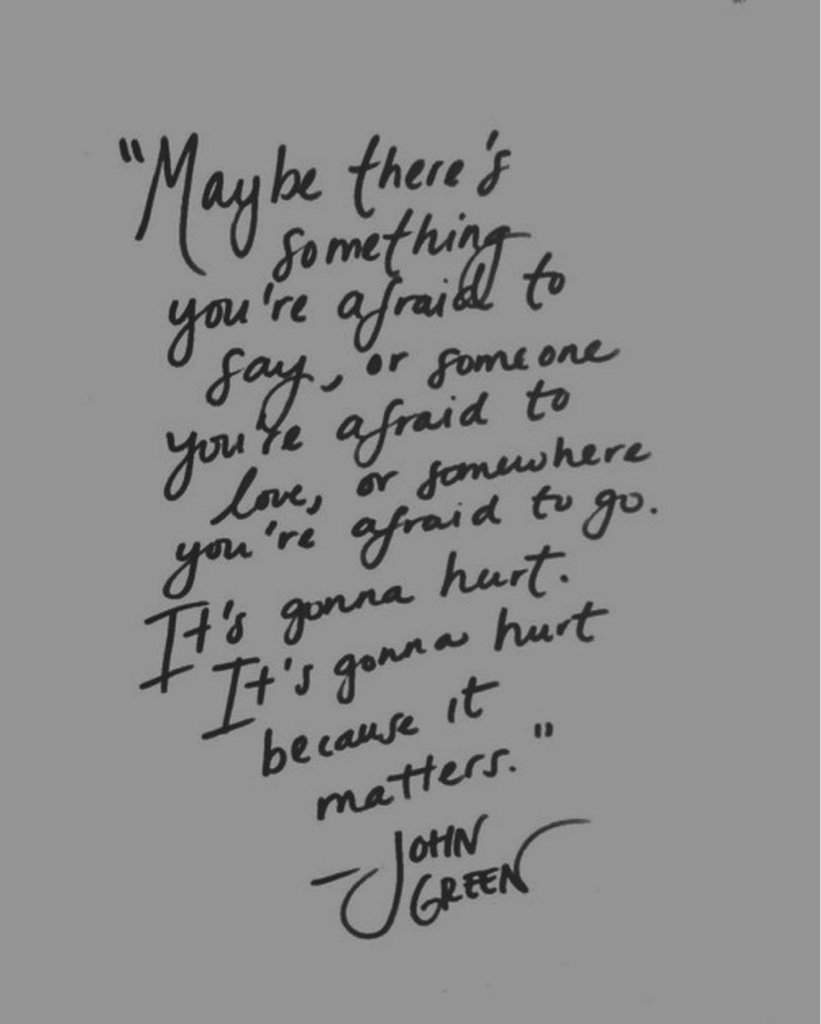 "Maybe there's
something
you're afraid to
say, or someone
you're afraid to
love, or somewhere
you're afraid to go.
It's gonna hurt.
It's gonna hurt
because it
matters."
—JOHN
GREEN